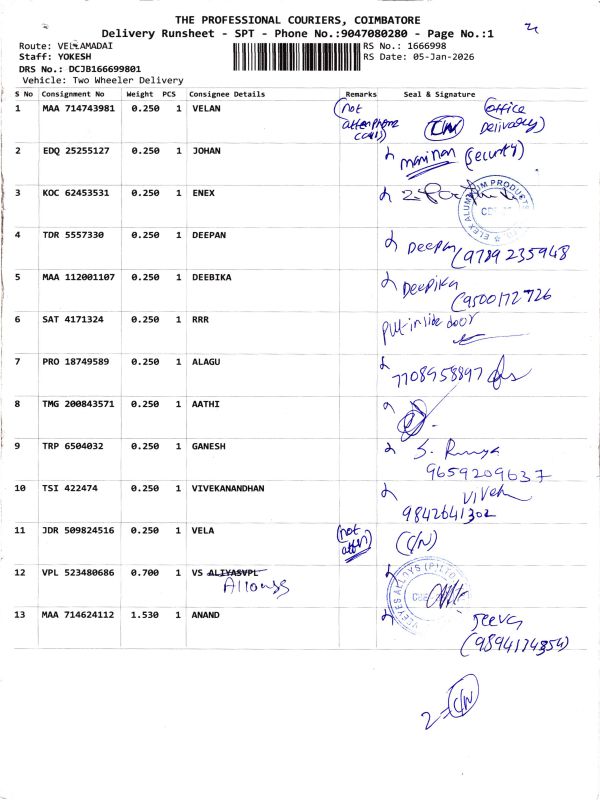 THE PROFESSIONAL COURIERS, COIMBATORE
Delivery Runsheet - SPT - Phone No.:9047080280 - Page No.:1
Route: VELLAMADAI
RS No.: 1666998
Staff: YOKESH
RS Date: 05-Jan-2026
DRS No.: DCJB166699801
Vehicle: Two Wheeler Delivery
S No Consignment No Weight PCS Consignee Details Remarks Seal & Signature
1 MAA 714743981 0.250 1 VELAN (not (office
C/N Delivery)
2 EDQ 25255127 0.250 1 JOHAN (security)
3 KOC 62453531 0.250 1 ENEX
ELEX ALUMINIUM PRODUCTS
4 TDR 5557330 0.250 1 DEEPAN Deepan
(9789235948
5 MAA 112001107 0.250 1 DEEBIKA Deepika
(9500172726
6 SAT 4171324 0.250 1 RRR put inside door
7 PRO 18749589 0.250 1 ALAGU
7708958897
8 TMG 200843571 0.250 1 AATHI
9 TRP 6504032 0.250 1 GANESH S. Ramya
9659209637
10 TSI 422474 0.250 1 VIVEKANANDHAN Vivek
9842641302
11 JDR 509824516 0.250 1 VELA (not atten) (C/N)
12 VPL 523480686 0.700 1 VS ALIYASVPL
Alloyss
VCEYES ALLOYS (P) LTD
13 MAA 714624112 1.530 1 ANAND Jeeva
(9894174354)
2 = C/N